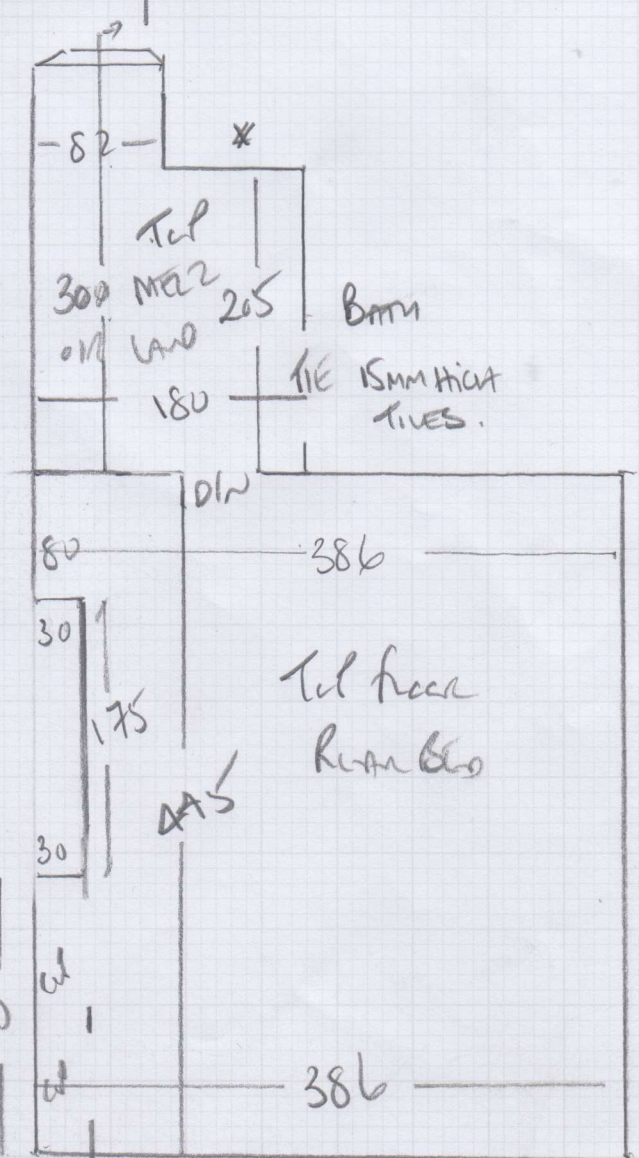 82
*
TOP
300 MEZZ 205
OR LAND
BATH
TIE 15MM HIGH
TILES.
180
D/N
80
386
30
175
TOP FLOOR
REAR BED
445
30
W
W
386